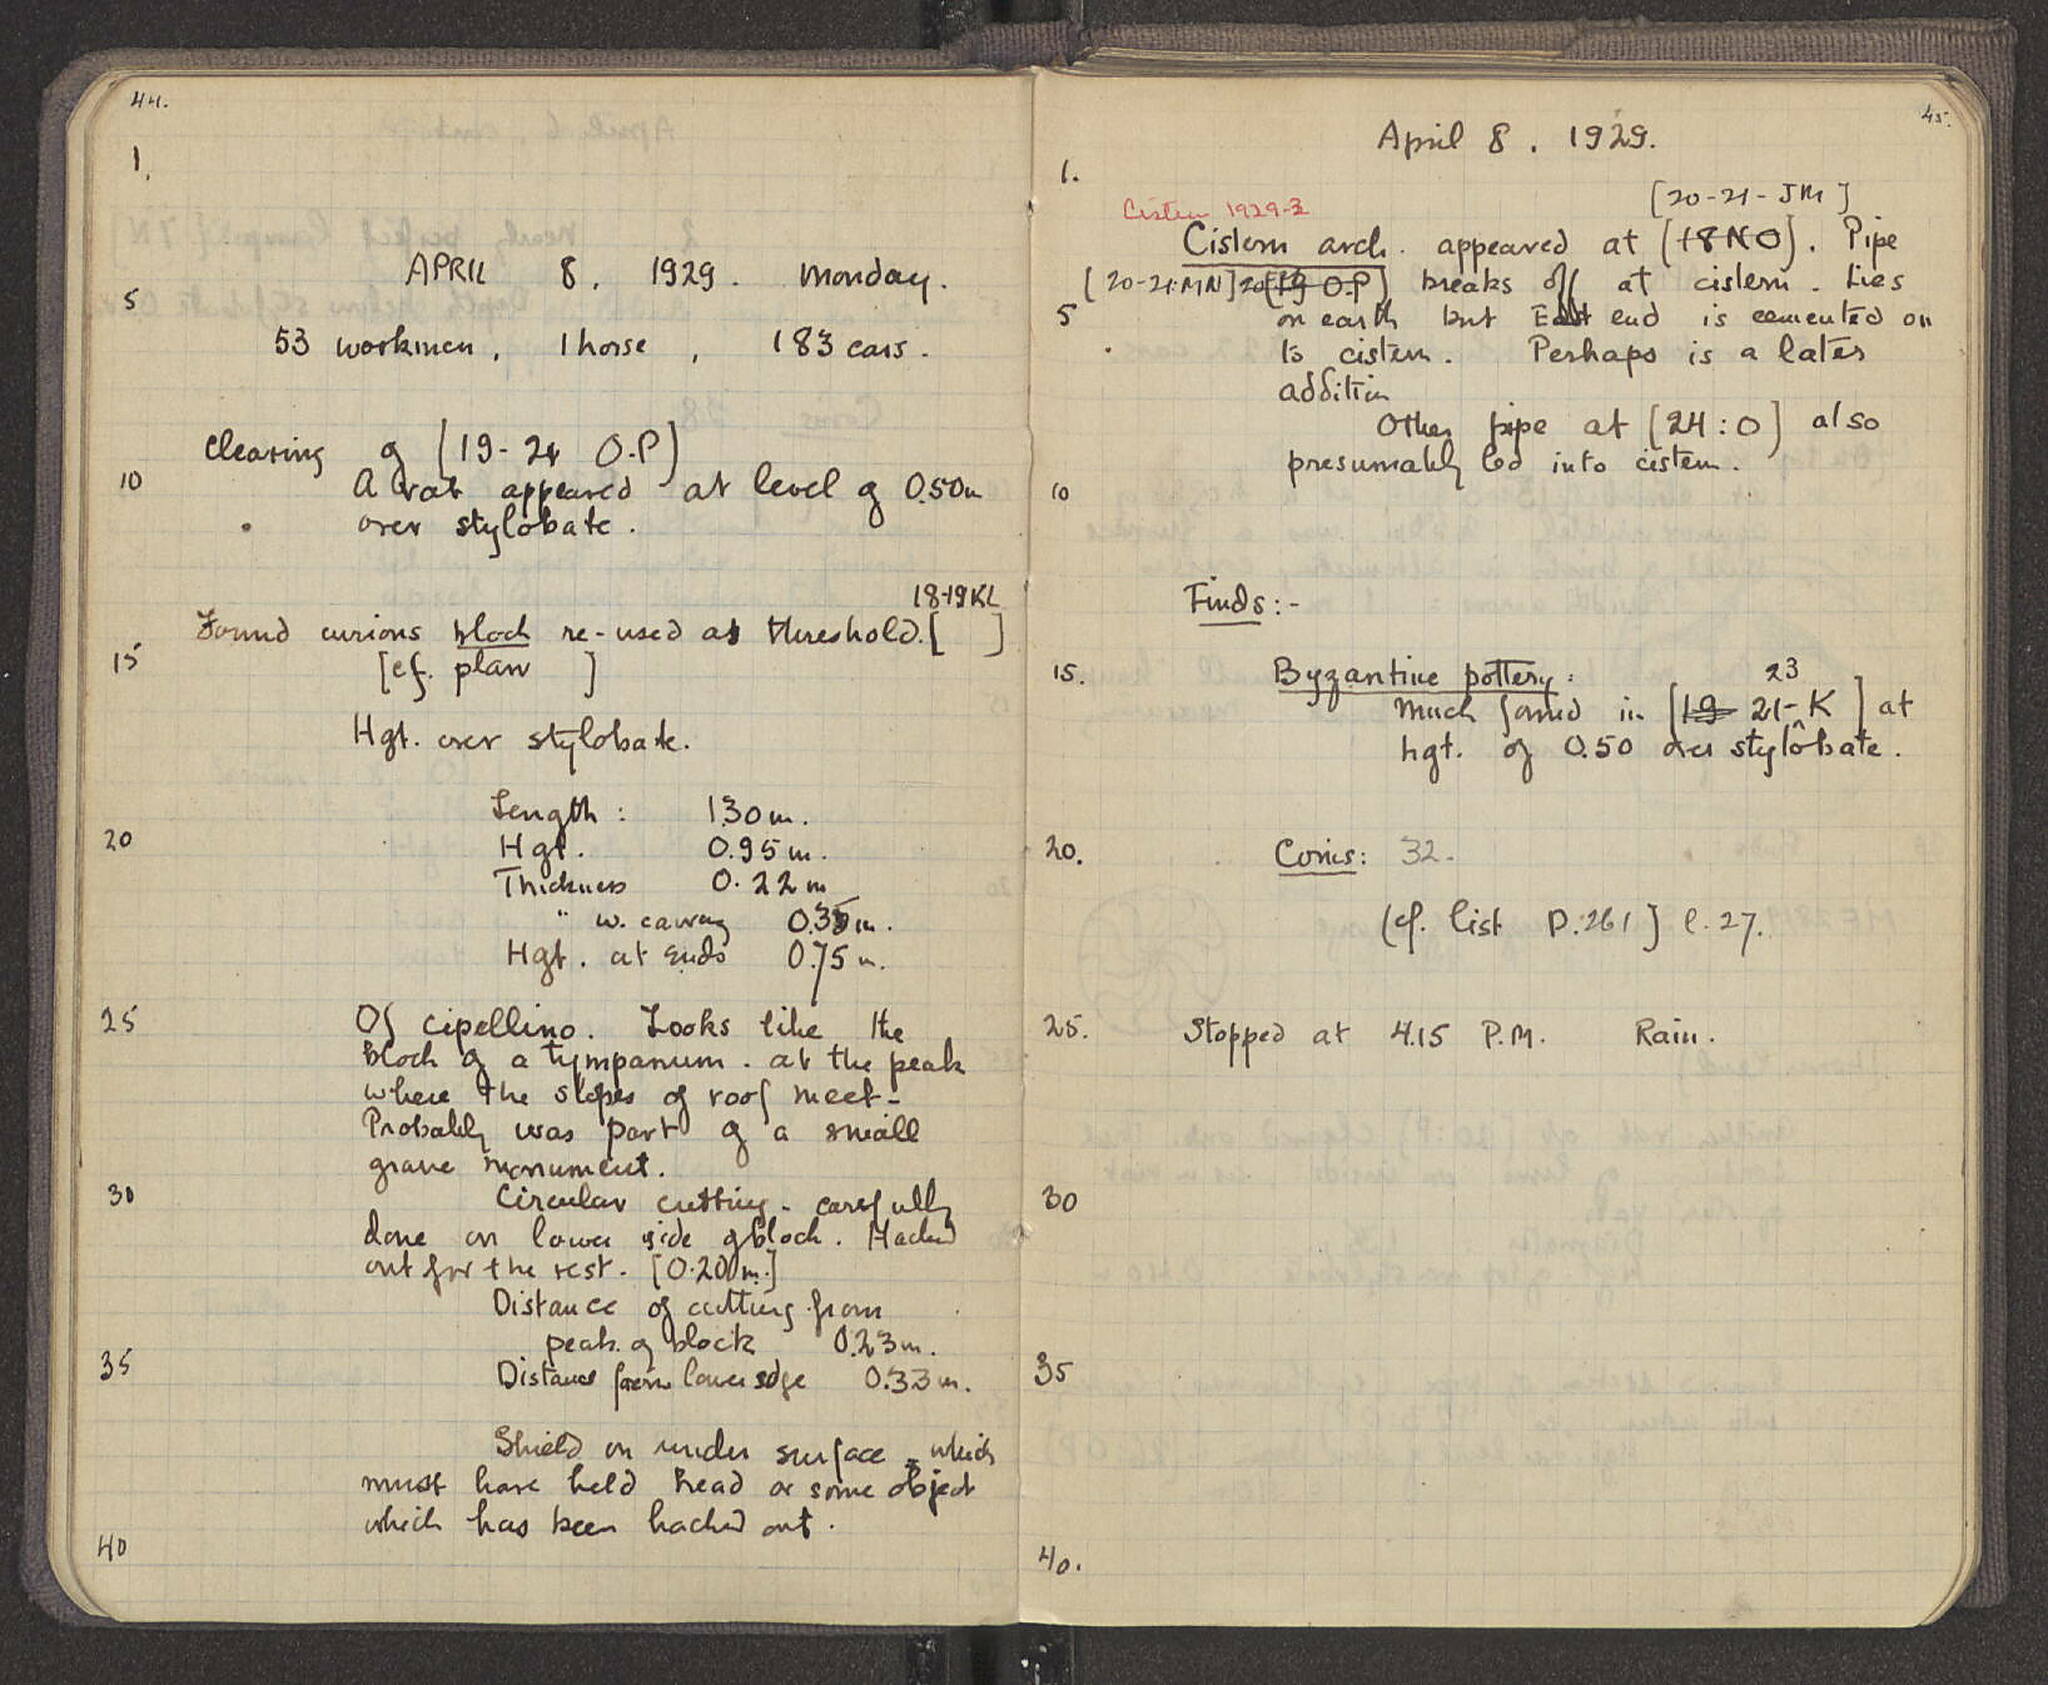 44.
1.
APRIL 8. 1929. Monday.
5
53 workmen, 1 horse, 183 cars.
Clearing of [19-24 O-P]
10
A vat appeared at level of 0.50m
over stylobate.
18-19KL
Found curious block re-used as threshold. [ ]
15
[cf. plan ]
Hgt. over stylobate.
Length: 1.30 m.
20
Hgt. 0.95 m.
Thickness 0.22 m
" w. carving 0.35 m.
Hgt. at ends 0.75 m.
25
Of cipellino. Looks like the
block of a tympanum. at the peak
where the slopes of roof meet-
Probably was part of a small
grave monument.
30
Circular cutting - carefully
done on lower side of block. Hacked
out for the rest. [0.20 m.]
Distance of cutting from
peak of block 0.23 m.
35
Distance from lower edge 0.33 m.
Shield on under surface - which
must have held head or some object
which has been hacked out.
40
45.
April 8. 1929.
1.
[20-21-JM]
Cistern 1929-3
Cistern arch. appeared at [18 NO]. Pipe
[20-21:MN] 20 [19 O-P] breaks off at cistern. Lies
5
on earth but East end is cemented on
to cistern. Perhaps is a later
addition
Other pipe at [24:O] also
presumably led into cistern.
10
Finds:-
15.
Byzantine pottery:
23
Much found in [19 21-K] at
hgt. of 0.50 over stylobate.
20.
Coins: 32.
(cf. list P.261] l.27.
25.
Stopped at 4.15 P.M. Rain.
30
35
40.